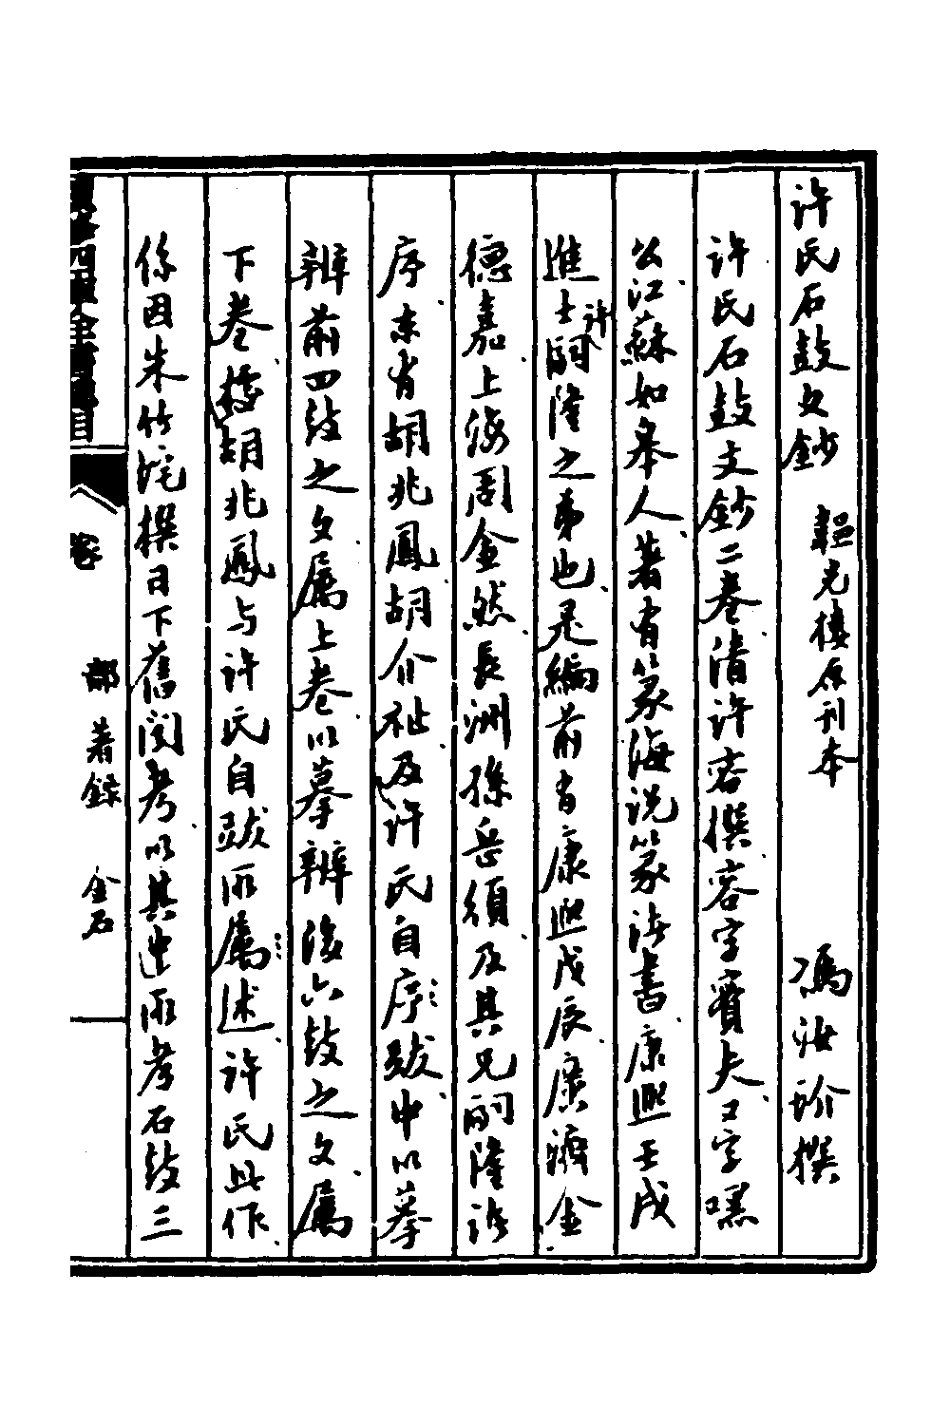 許氏石鼓文鈔　韞光樓原刊本　馮汝玠撰
許氏石鼓文鈔二卷清許容撰容字實夫又字嘿
公江蘇如皋人著有篆海説篆法書康熙壬戌
進士許嗣隆之弟也是編前有康熙戊辰廣濟金
德嘉上海周金然長洲孫岳頒及其兄嗣隆諸
序末有胡兆鳳胡介祉及許氏自序跋中以摹
辨前四鼓之文屬上卷以摹辨後六鼓之文屬
下卷據胡兆鳳与許氏自跋所屬述許氏此作
係因朱竹垞撰日下舊聞考以其連所考石鼓三
續修四庫全書總目　稾　部　著錄　金石